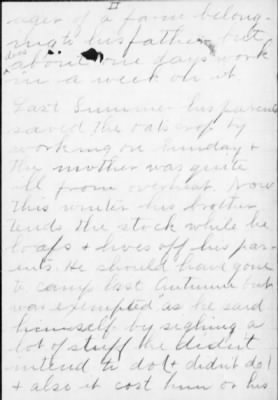 II
ager of a farm belong-
ing to his father but
does about one days work
in a week on it
Last Summer his parents
saved the oat crop by
working on Sunday &
the mother was quite
ill from overheat. Now
this winter his brother
tends the stock while he
loafs & lives off his par-
ents. He should have gone
to camp last Autumn but
was exempted as he said
himself by signing a
lot of stuff he didnt
intend to do (& didn't do)
& also it cost him or his